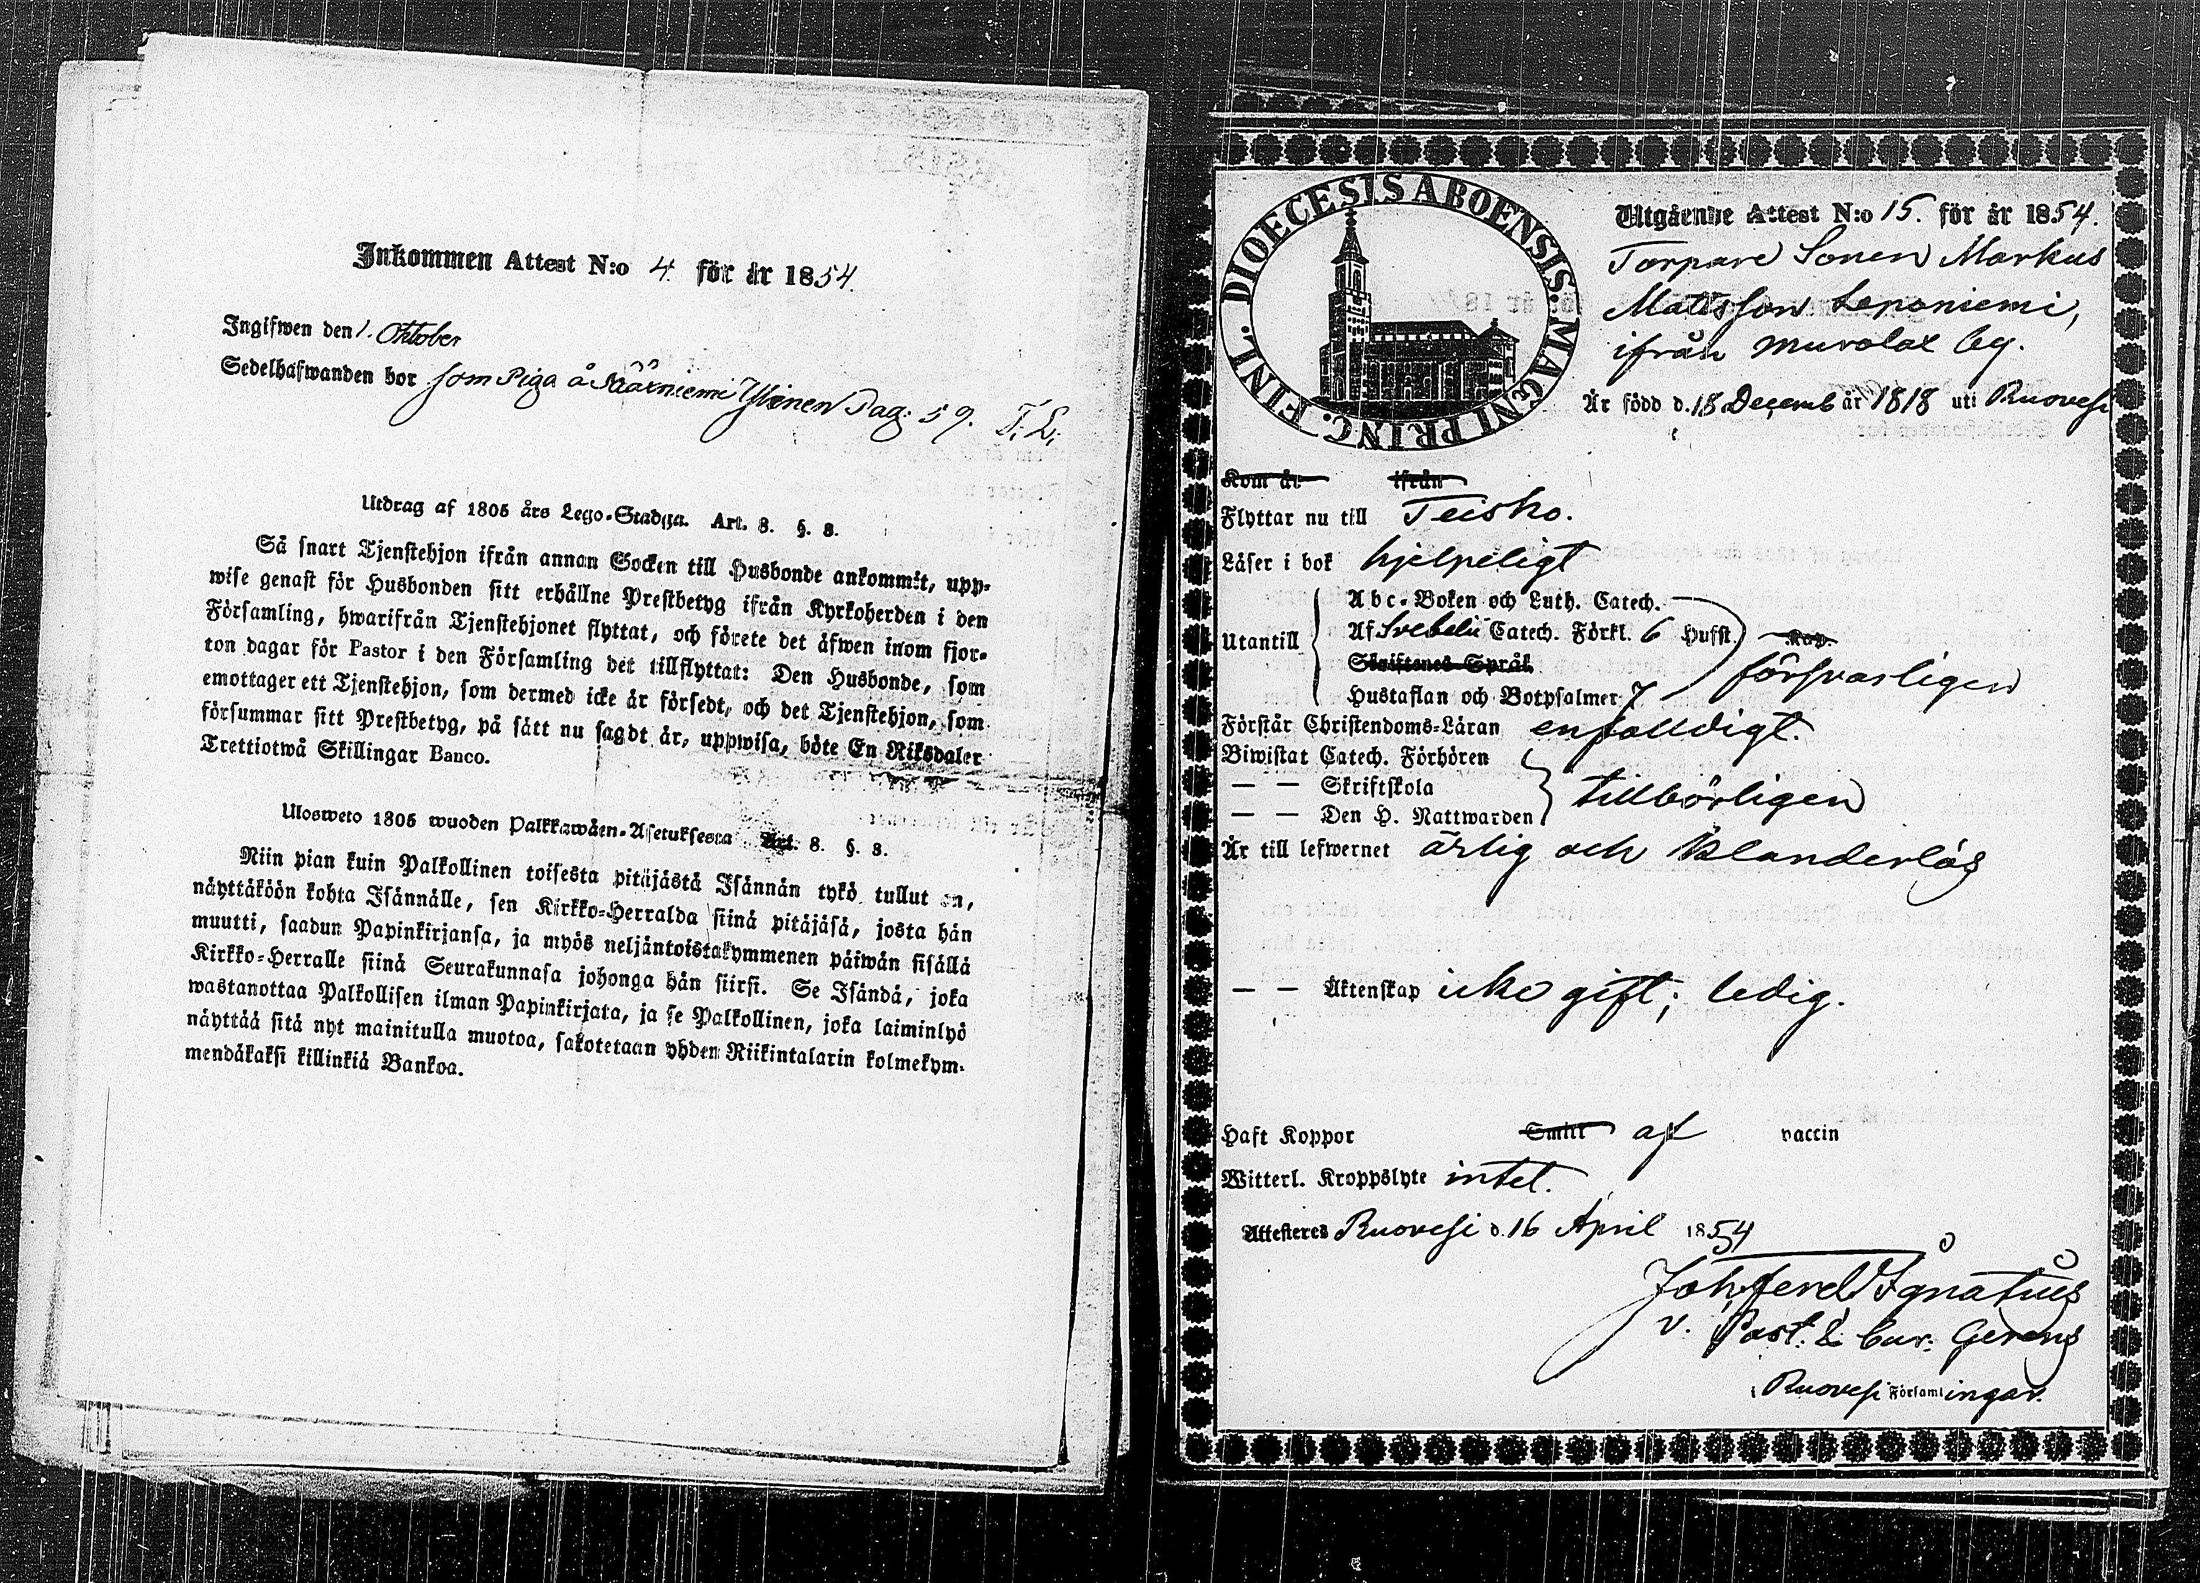 Inkommen Attest N:o 4. för år 1854.
Ingifwen den 1. Oktober
Sedelhafwanden bor som Piga å Kää̈rniemi Ylinen Pag: 59. T. L.
Utdrag af 1805 års Lego-Stadga. Art. 8. §. 8.
Så snart Tjenstehjon ifrån annan Socken till Husbonde ankommit, upp-
wise genast för Husbonden sitt erhållne Prestbetyg ifrån Kyrkoherden i den
Församling, hwarifrån Tjenstehjonet flyttat, och förete det äfwen inom fjor-
ton dagar för Pastor i den Församling det tillflyttat: Den Husbonde, som
emottager ett Tjenstehjon, som dermed icke är försedt, och det Tjenstehjon, som
försummar sitt Prestbetyg, på sätt nu sagdt är, uppwisa, böte En Riksdaler
Trettiotwå Skillingar Banco.
Ulosweto 1805 wuoden Palkkawäen-Asetuksesta Art. 8. §. 8.
Niin pian kuin Palkollinen toisesta pitäjästä Isännän tykö tullut on,
näyttäköön kohta Isännälle, sen Kirkko-Herralda siinä pitäjäsä, josta hän
muutti, saadun Papinkirjansa, ja myös neljäntoistakymmenen päiwän sisällä
Kirkko-Herralle siinä Seurakunnasa johonga hän siirsi. Se Isändä, joka
wastanottaa Palkollisen ilman Papinkirjata, ja se Palkollinen, joka laiminlyö
näyttää sitä nyt mainitulla muotoa, sakotetaan yhden Riikintalarin kolmekym-
mendäkaksi killinkiä Bankoa.
DIOECESIS ABOENSIS. MAGNI PRINC. FINL.
Utgående Attest N:o 15. för år 1854.
Torpare Sonen Markus
Mattsson Leponiemi,
ifrån Murolax by.
Är född d. 18 Decemb år 1818 uti Ruovesi
Kom år ifrån
Flyttar nu till Teisko.
Läser i bok hjelpeligt
Utantill
Abc-Boken och Luth. Catech.
Af Svebelii Catech. Förkl. 6 Hufst. Kap.
Skriftenes Språk
Hustaflan och Botpsalmer 7
försvarligen
Förstår Christendoms-Läran enfalldigt.
Biwistat Catech. Förhören
— — Skriftskola
— — Den H. Nattwarden
tillbörligen
Är till lefwernet ärlig och klanderlös
— — Äktenskap icke gift; ledig.
Haft Koppor Smitt af vaccin
Witterl. Kroppslyte intet.
Attesteres Ruovesi d. 16 April 1854
Joh. Ferd. Ignatius
v. Past: & Cur: Gerens
i Ruovesi Församlingar.